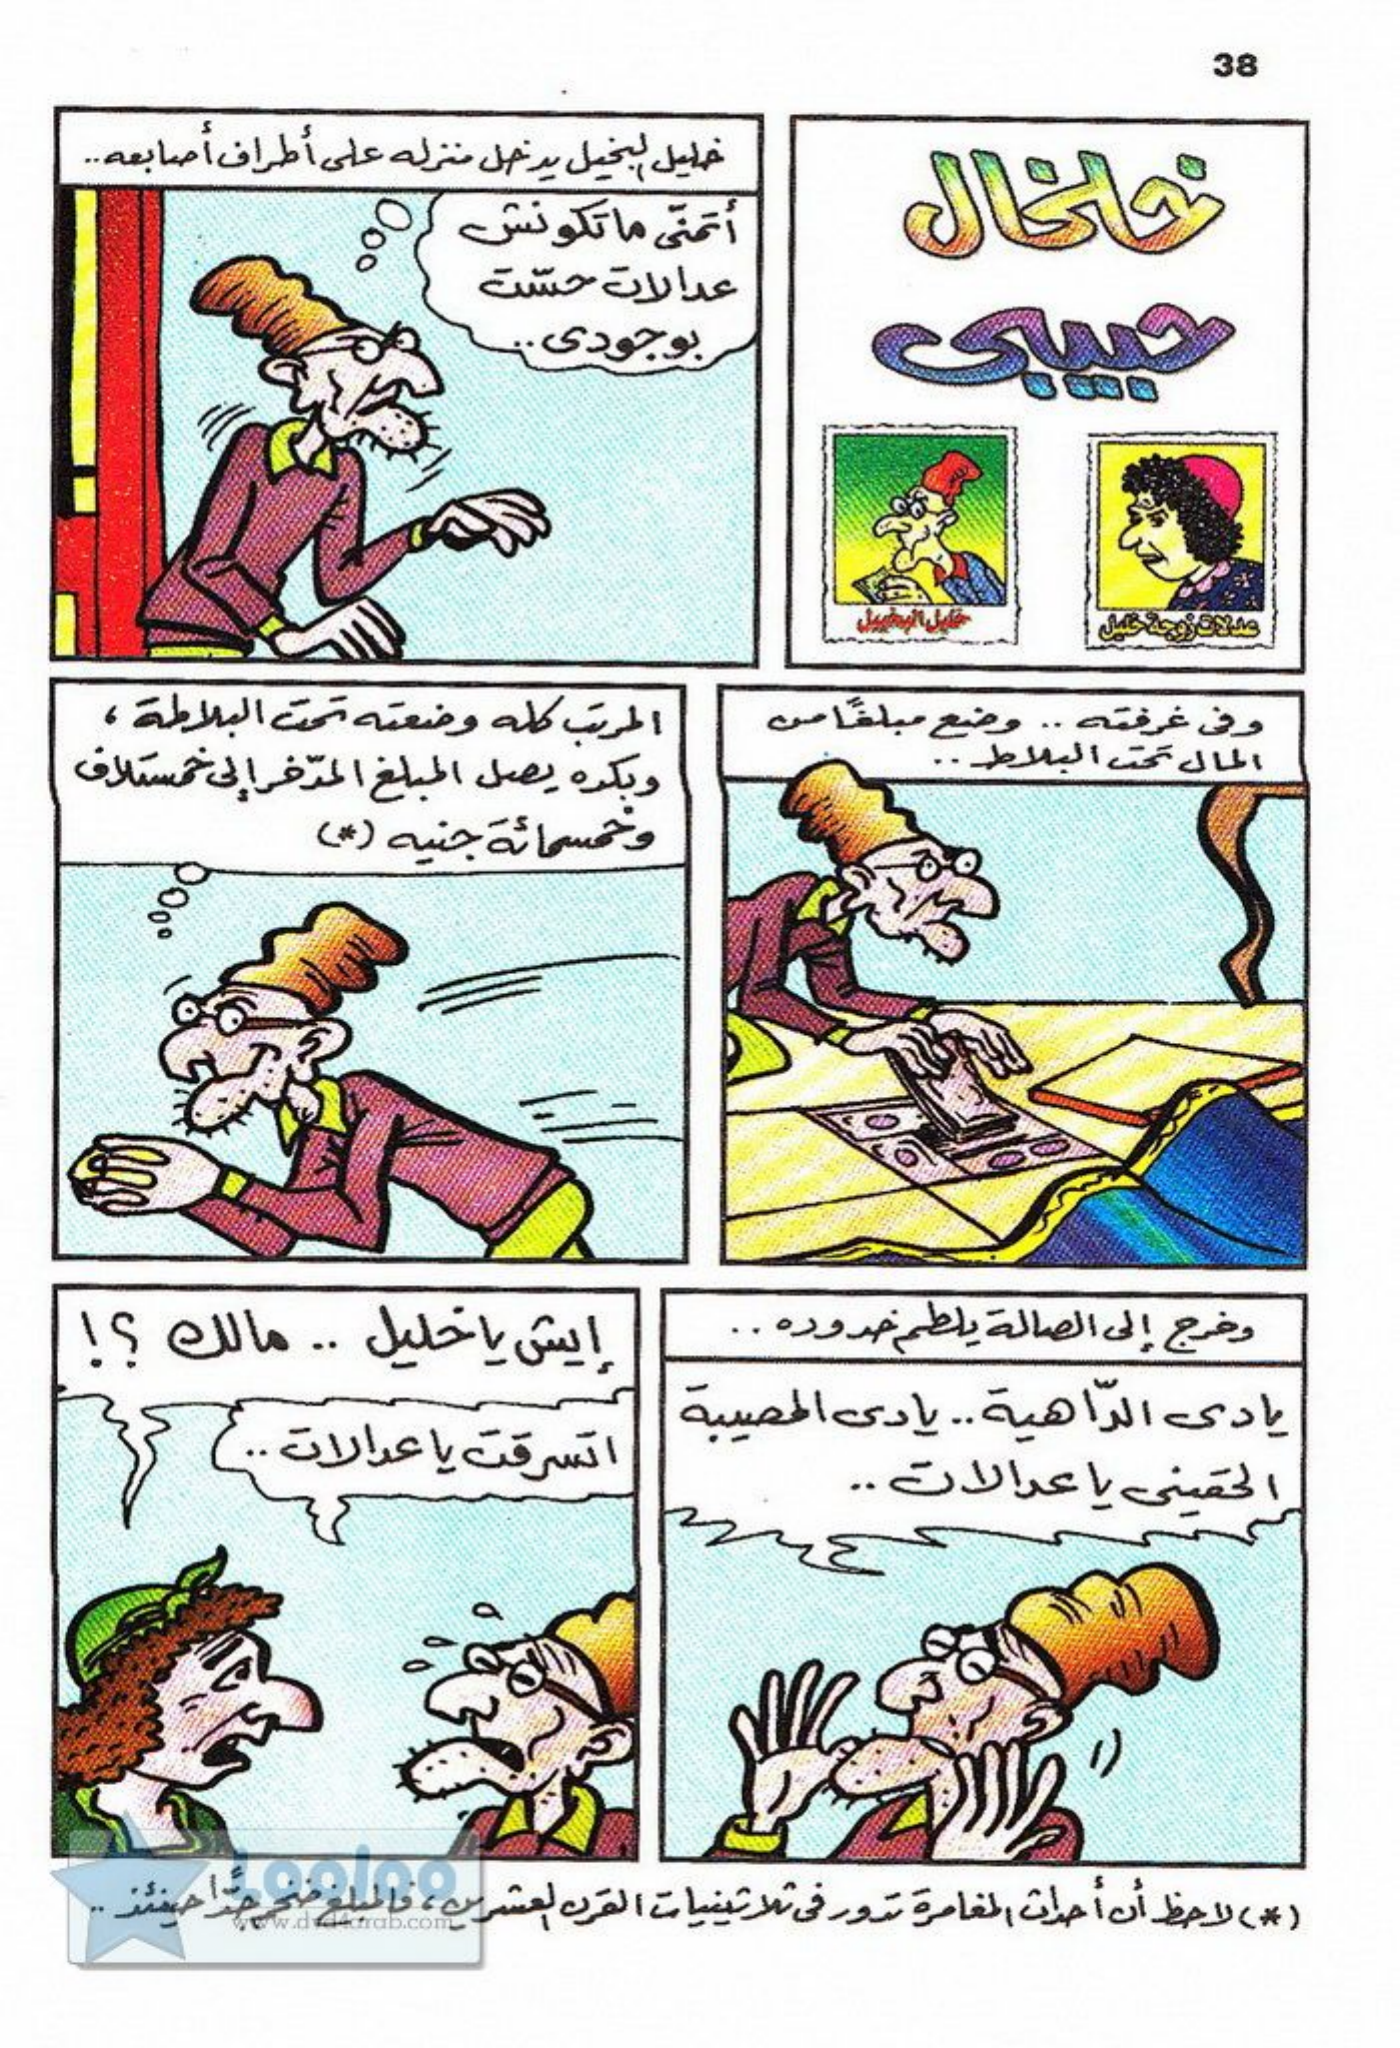 38
خلخال
حبيبى
عدلات زوجة خليل
خليل البخيل
خليل البخيل يدخل منزله على أطراف أصابعه..
أتمنّى ماتكونش
عدالات حسّت
بوجودى..
وفى غرفته .. وضع مبلغًا من
المال تحت البلاط ..
المرتب كله وضعته تحت البلاطة ،
وبكده يصل المبلغ المدّخر إلى خمستلاف
وخمسمائة جنيه (*)
وخرج إلى الصالة يلطم خدوده ..
يادى الدّاهية .. يادى المصيبة
الحقينى يا عدالات ..
إيش يا خليل .. مالك ؟!
اتسرقت يا عدالات ..
(*) لاحظ أن أحداث المغامرة تدور فى ثلاثينيات القرن العشرين ، فالمبلغ ضخم جدًّا حينئذ ..
Looloo
www.dvd4arab.com